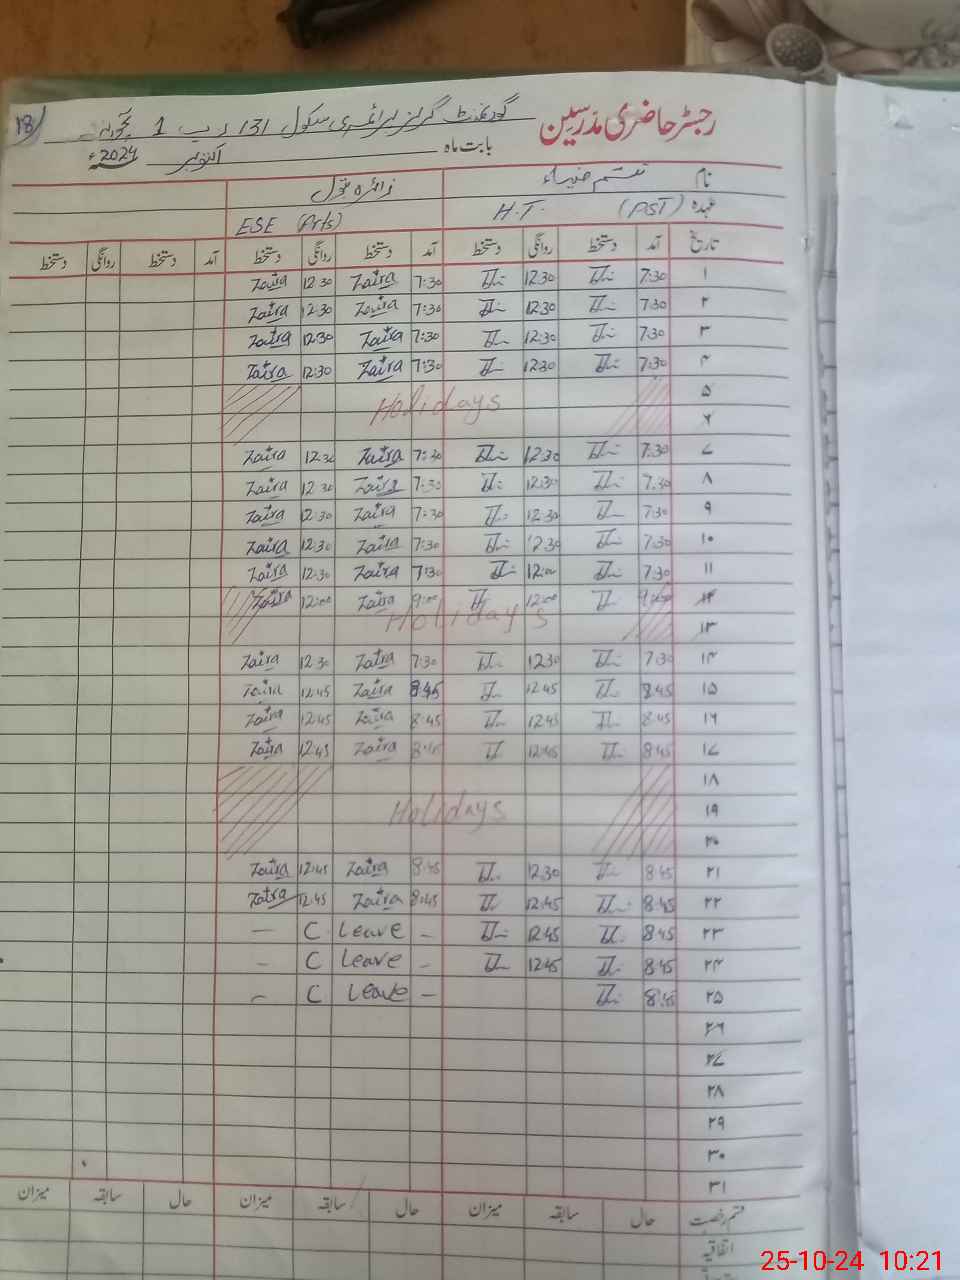 رجسٹر حاضری مدرسین
گورنمنٹ گرلز پرائمری سکول 131 د ب 1
18
بابت ماہ اکتوبر 2024ء
نام تبسم ضیاء زائرہ بتول
عہدہ (PST) H.T. ESE (Arts)
تاریخ آمد دستخط روانگی دستخط آمد دستخط روانگی دستخط آمد دستخط روانگی دستخط
۱ 7:30 12:30 7:30 Zaira 12:30 Zaira
۲ 7:30 12:30 7:30 Zaira 12:30 Zaira
۳ 7:30 12:30 7:30 Zaira 12:30 Zaira
۴ 7:30 12:30 7:30 Zaira 12:30 Zaira
۵ Holidays
۶
۷ 7:30 12:30 7:30 Zaira 12:30 Zaira
۸ 7:30 12:30 7:30 Zaira 12:30 Zaira
۹ 7:30 12:30 7:30 Zaira 12:30 Zaira
۱۰ 7:30 12:30 7:30 Zaira 12:30 Zaira
۱۱ 7:30 12:00 7:30 Zaira 12:30 Zaira
۱۲ 9:00 12:00 9:00 Zaira 12:00 Zaira
۱۳ Holidays
۱۴ 7:30 12:30 7:30 Zaira 12:30 Zaira
۱۵ 8:45 12:45 8:45 Zaira 12:45 Zaira
۱۶ 8:45 12:45 8:45 Zaira 12:45 Zaira
۱۷ 8:45 12:45 8:45 Zaira 12:45 Zaira
۱۸
۱۹ Holidays
۲۰
۲۱ 8:45 12:30 8:45 Zaira 12:45 Zaira
۲۲ 8:45 12:45 8:45 Zaira 12:45 Zaira
۲۳ 8:45 12:45 – Leave C –
۲۴ 8:45 12:45 – Leave C –
۲۵ 8:45 – Leave C –
۲۶
۲۷
۲۸
۲۹
۳۰
۳۱
قسم رخصت حال سابقہ میزان حال سابقہ میزان حال سابقہ میزان
اتفاقیہ
25-10-24 10:21